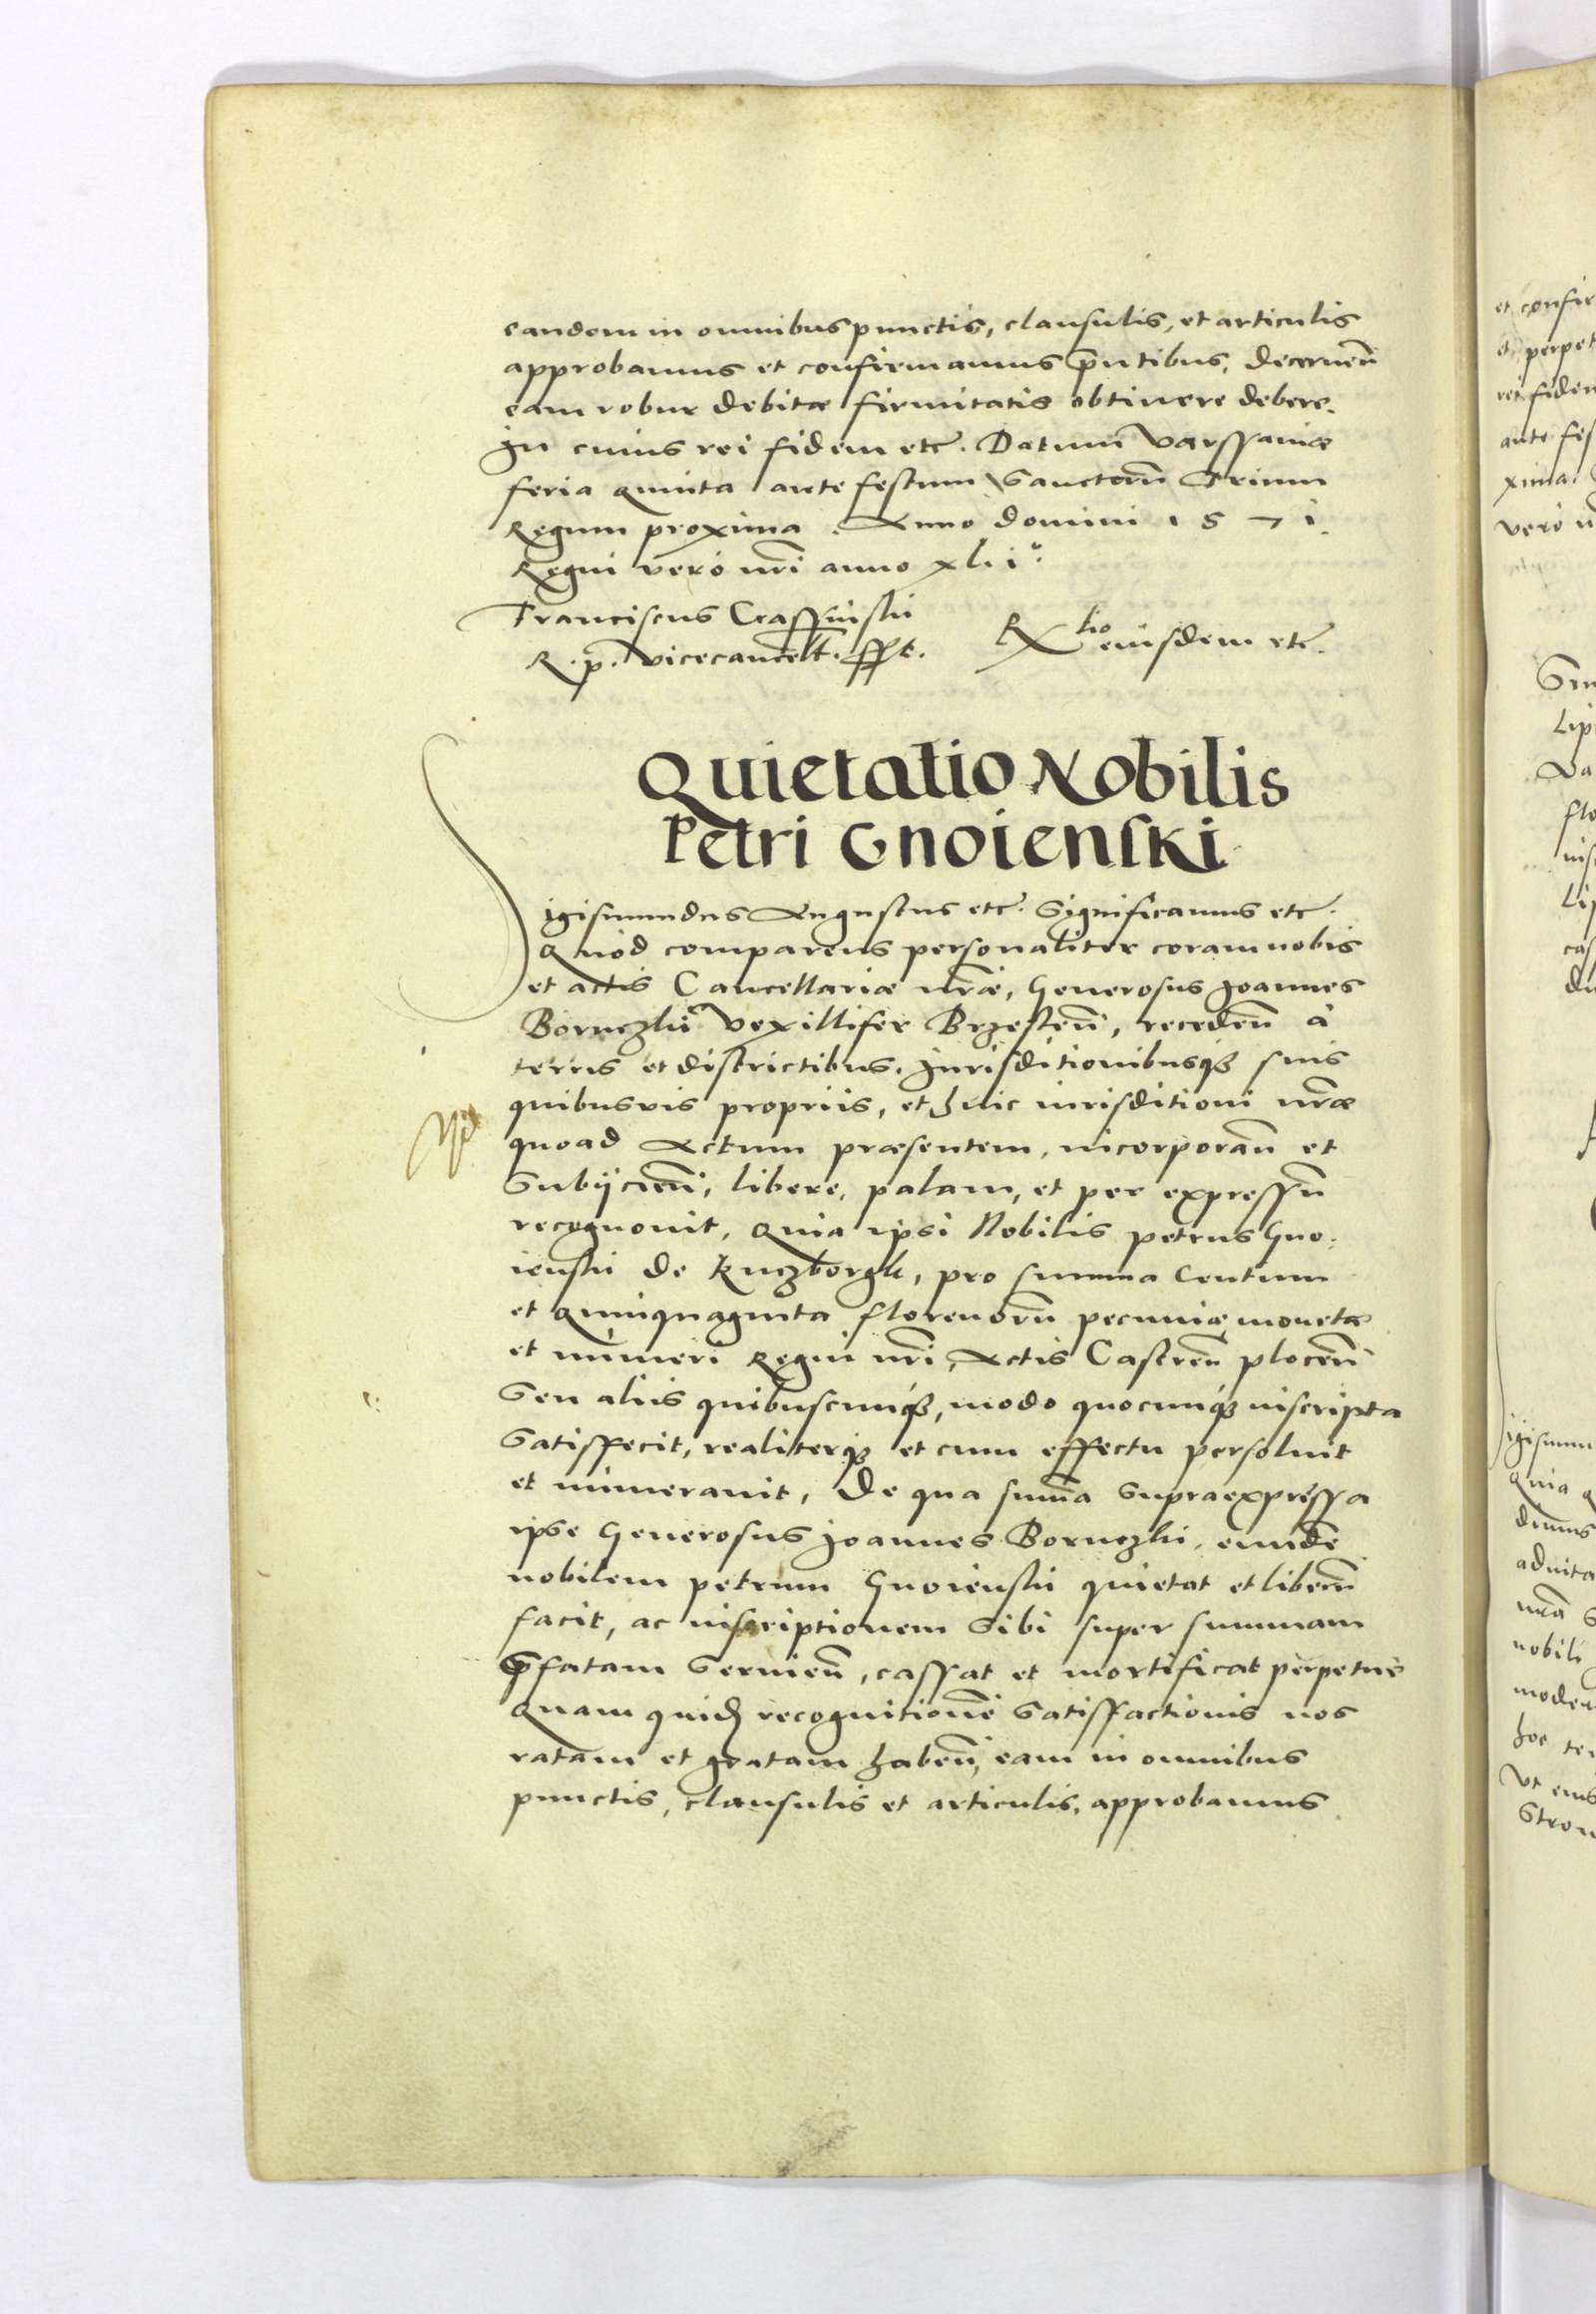 eandem in omnibus punctis, clausulis, et articulis
approbamus et confirmamus p̄ntibus, decernen̄
eam robur debitæ firmitatis obtinere debere.
In cuius rei fidem etc. Datum Varssaviæ
feria quinta ante festum Sanctorū Trium
Regum proxima. Anno domini 1571.
Regni verò nr̄i anno xli°.
Franciscus Crassinski
R. p. vicecancell. sspt.
Rlio eiusdem etc.
Quietatio Nobilis
Petri Gnoienski
Sigismundus Augustus etc. Significamus etc.
Quod comparens personaliter coram nobis
et actis Cancellariæ nr̄æ, Generosus Joannes
Boruczki Vexillifer Brzesten̄, receden̄ à
terris et districtibus, Jurisditionibusqꝫ suis
quibusvis propriis, et huic iurisditioni nr̄æ
quoad Actum præsentem, incorporan̄ et
Subijcien̄, libere, palam, et per expressū
recognovit, Quia ipsi Nobilis petrus Gno-
ienski de Kuczborgk, pro summa Centum
et Quinquaginta florenorū pecuniæ monetæ
et numeri Regni nr̄i, Actis Castren̄ plocen̄
Seu aliis quibuscunqꝫ, modo quocunqꝫ inscripta
Satisfecit, realiterqꝫ et cum effectu persolvit
et numeravit, De qua sum̄a supraexpressa
ipse Generosus Joannes Boruczki, eundē
nobilem petrum Gnoienski quietat et liberū
facit, ac inscriptionem Sibi super summam
p̄fatam Servien̄, cassat et mortificat perpetuè
Quam quidē recognitionē Satisfactionis nos
ratam et gratam haben̄, eam in omnibus
punctis, clausulis et articulis, approbamus